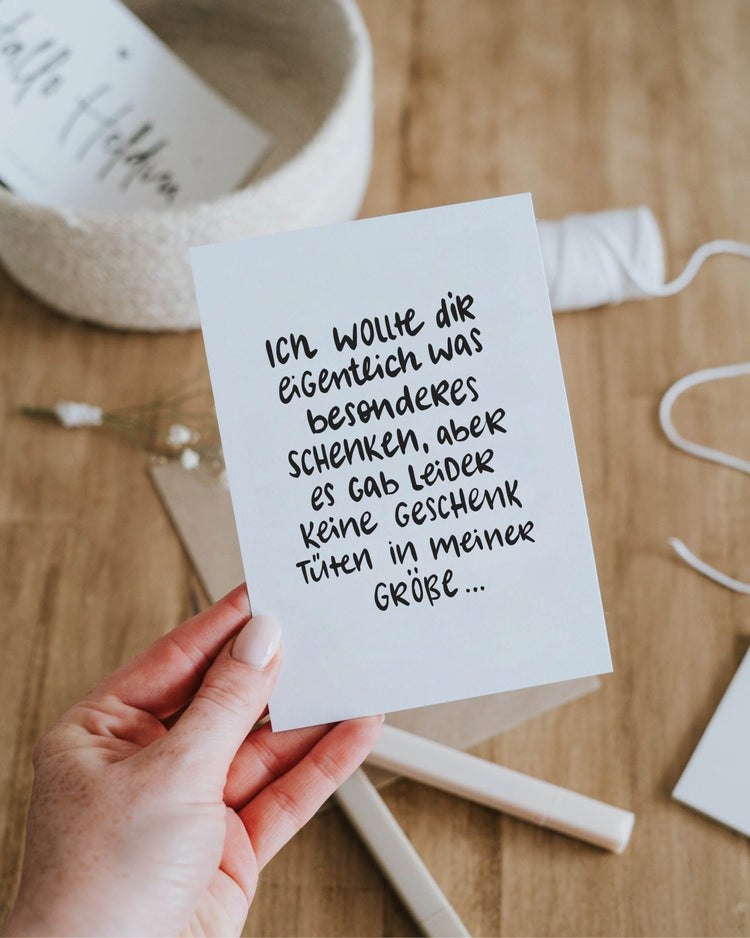 Hallo Heldin
ICH WOLLTE DIR
EIGENTLICH WAS
BESONDERES
SCHENKEN, ABER
ES GAB LEIDER
KEINE GESCHENK
TÜTEN IN MEINER
GRÖßE...